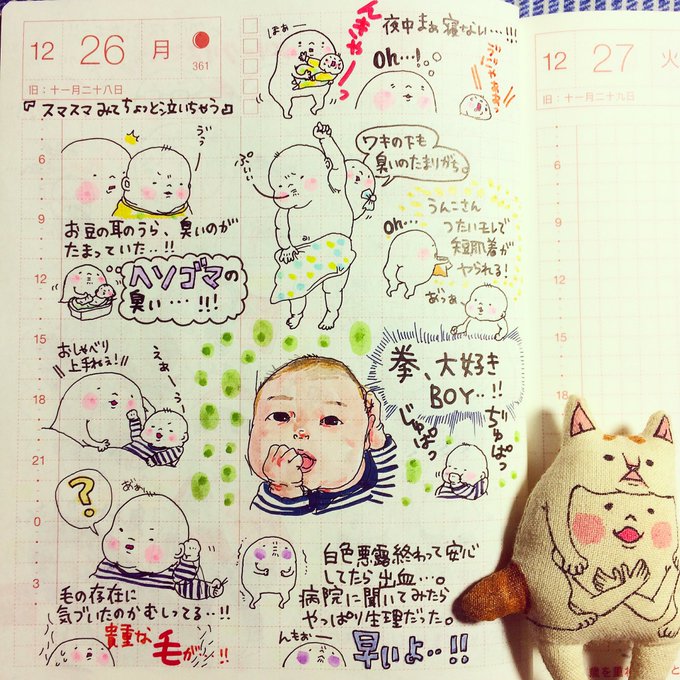 12 26 月
361
旧:十一月二十八日
『スマスマみてちょっと泣いちゃう』
はぁー
んぎゃーっ
夜中まぁ寝ない…!!!
Oh…!
12 27 火
旧:十一月二十九日
6
9
12
15
18
21
0
3
お豆の耳のうら、臭いのが
たまっていた‥!!
ヘソゴマの
臭い…!!!
ぷぃーん
ワキの下も
臭いのたまりがち。
Oh…
うんこさん
つたいモレで
短肌着が
ヤられる!
おしゃべり
上手ねぇ!!
えぁーう
拳、大好き
BOY‥!!
じゅぱっ
ぢゅぱっ
?
毛の存在に
気づいたのかむしってる‥!!
貴重な
毛が‥!!
白色悪露終わって安心
してたら出血…。
病院に聞いてみたら
やっぱり生理だった。
んもぉー
早いよ‥!!
6
9
12
15
18